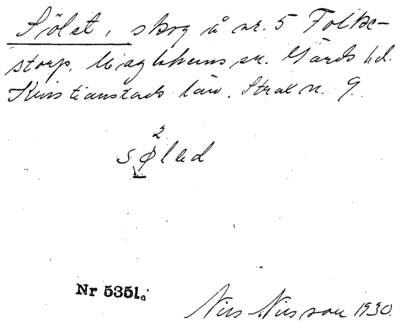 Sölet, skog å nr. 5 Folke-
storp, Maglehems sn. Gärds hd.
Kristianstads län. Strax n. 9.
2
sølad
Nr 5351.
Nils Nilsson 1930.